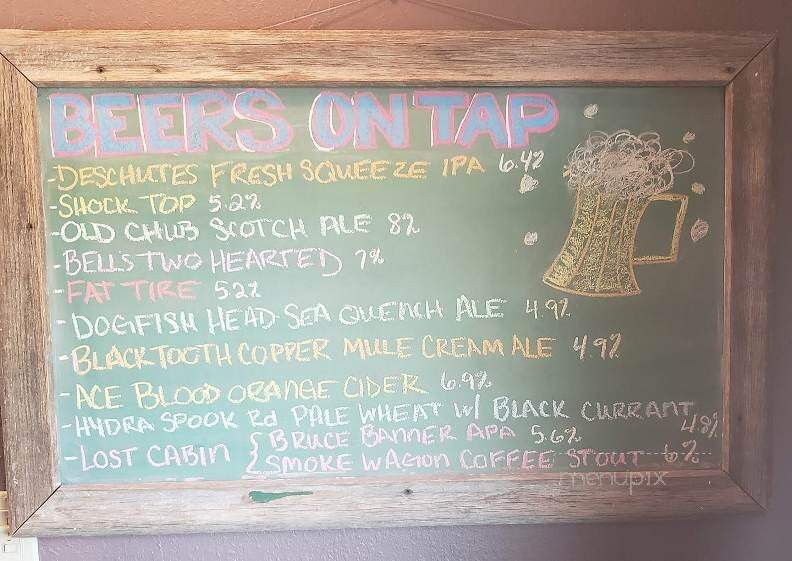 BEERS ON TAP
-DESCHUTES FRESH SQUEEZE IPA 6.4%
-SHOCK TOP 5.2%
-OLD CHUB SCOTCH ALE 8%
-BELLS TWO HEARTED 7%
-FAT TIRE 5.2%
-DOGFISH HEAD SEA QUENCH ALE 4.9%
-BLACK TOOTH COPPER MULE CREAM ALE 4.9%
-ACE BLOOD ORANGE CIDER 6.9%
-HYDRA SPOOK Rd PALE WHEAT W/ BLACK CURRANT 4.8%
-LOST CABIN { BRUCE BANNER APA 5.6%
SMOKE WAGON COFFEE STOUT 6%
menupix